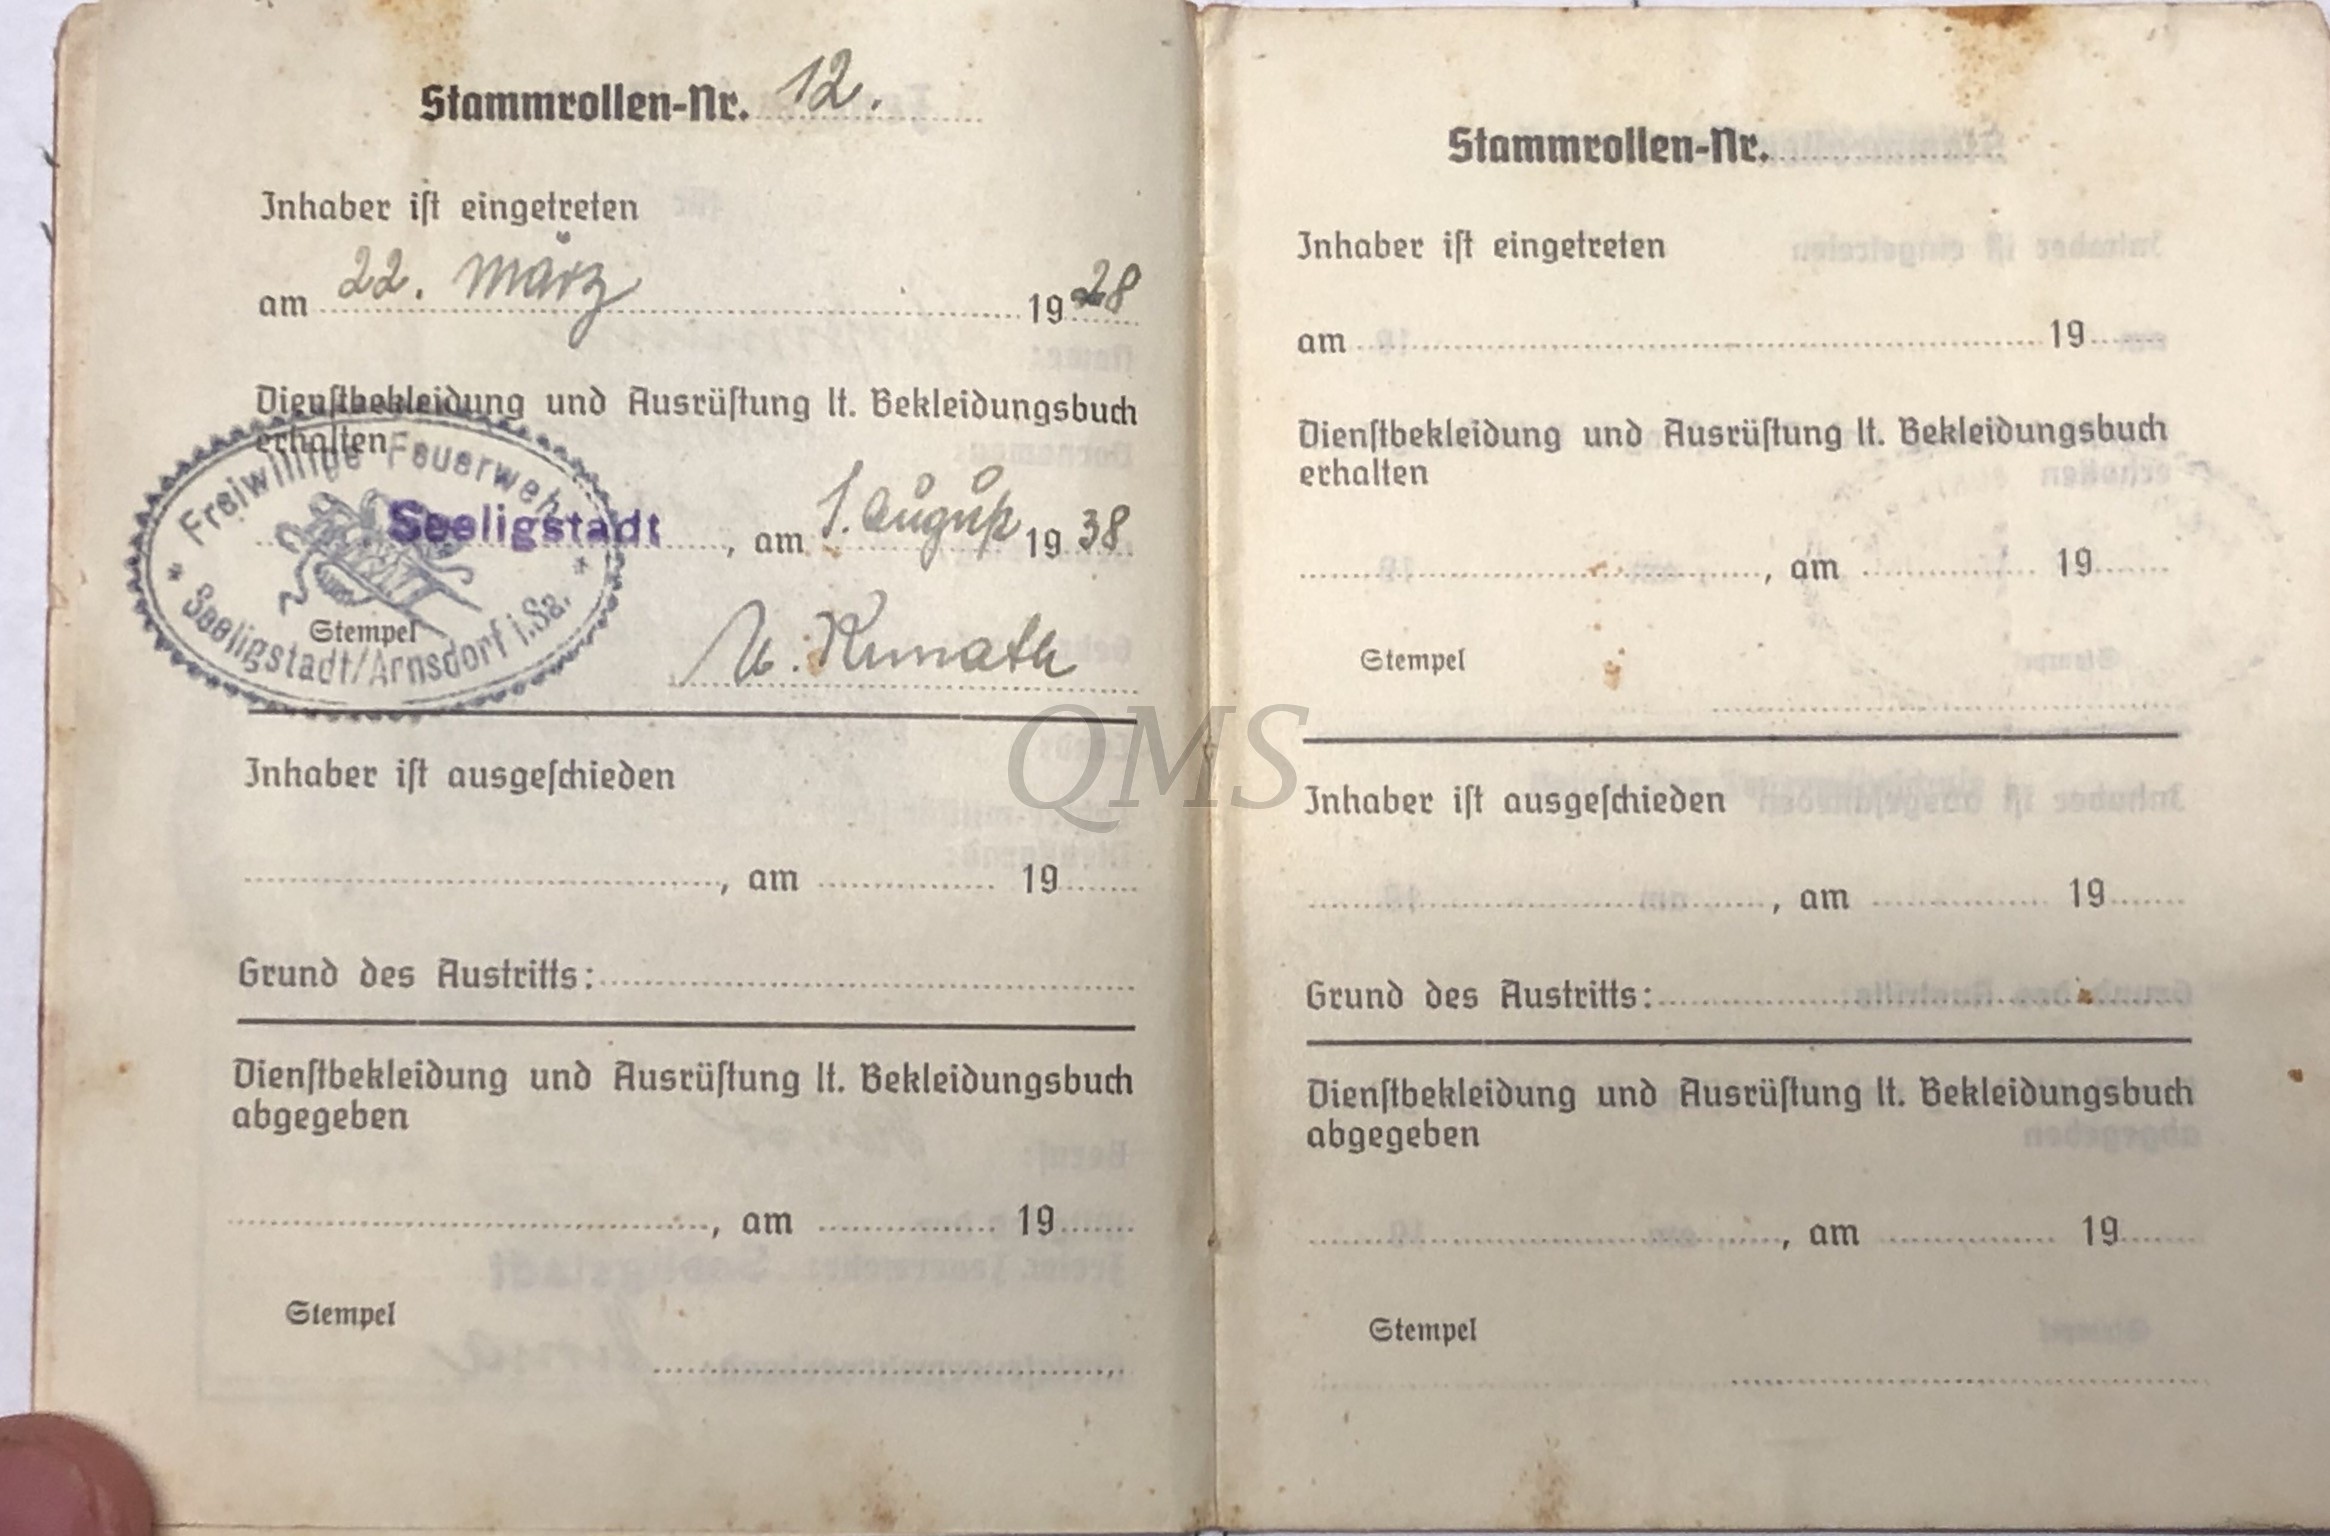 Stammrollen-Nr. 12.
Inhaber ist eingetreten
am 22. März 1928
Dienstbekleidung und Ausrüstung lt. Bekleidungsbuch
erhalten
Freiwillige Feuerwehr
Seeligstadt, am 1. August 1938
Stempel
Seeligstadt/Arnsdorf i.Sa.
Kunath
Inhaber ist ausgeschieden
, am 19
Grund des Austritts:
Dienstbekleidung und Ausrüstung lt. Bekleidungsbuch
abgegeben
, am 19
Stempel
Stammrollen-Nr.
Inhaber ist eingetreten
am 19
Dienstbekleidung und Ausrüstung lt. Bekleidungsbuch
erhalten
, am 19
Stempel
Inhaber ist ausgeschieden
, am 19
Grund des Austritts:
Dienstbekleidung und Ausrüstung lt. Bekleidungsbuch
abgegeben
, am 19
Stempel
QMS